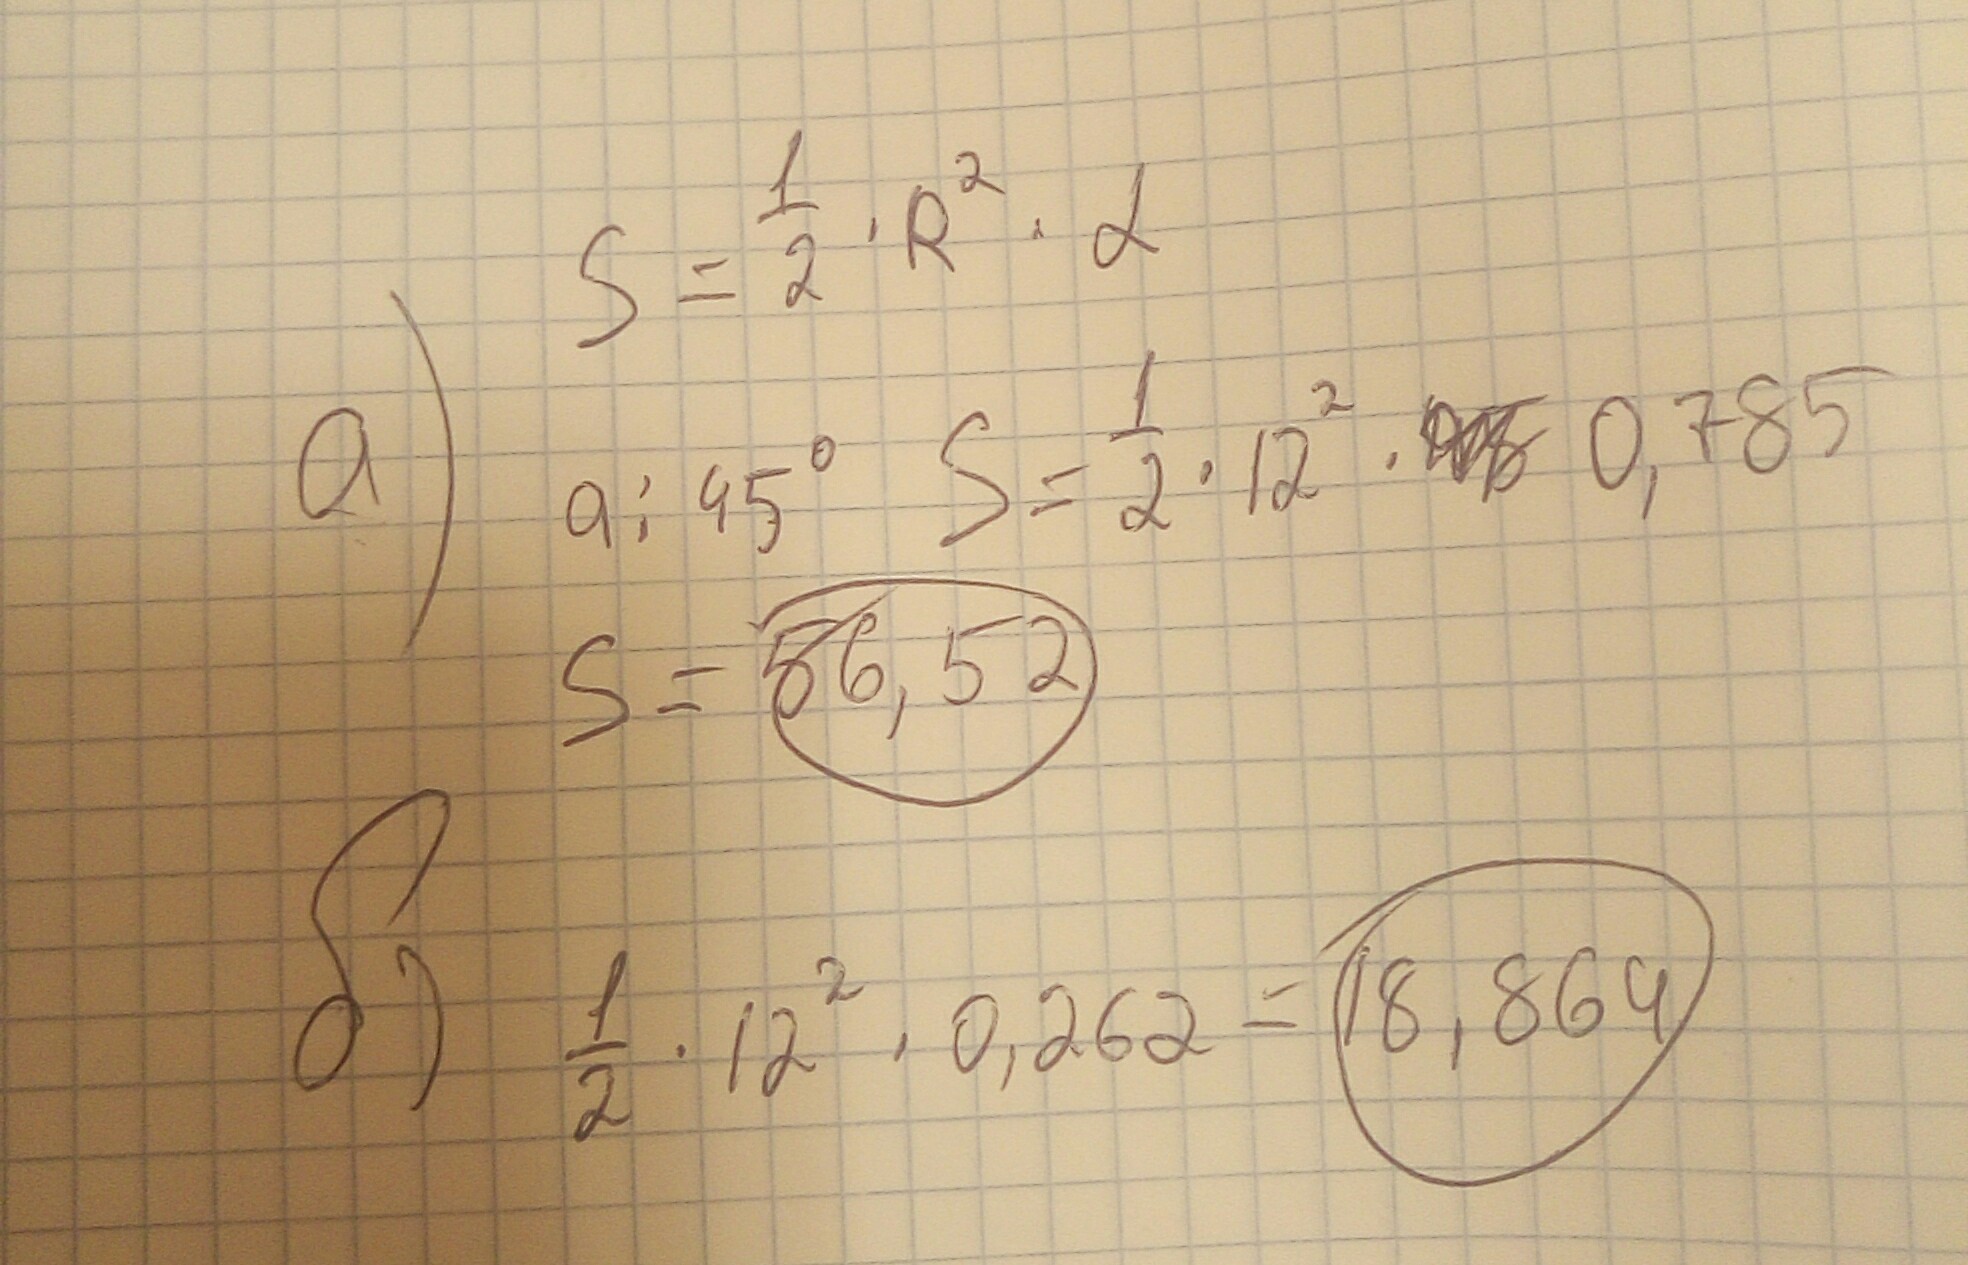 S = 1/2 · R² · α
а)
а: 45° S = 1/2 · 12² · 0,785
S = 56,52
б) 1/2 · 12² · 0,262 = 18,864